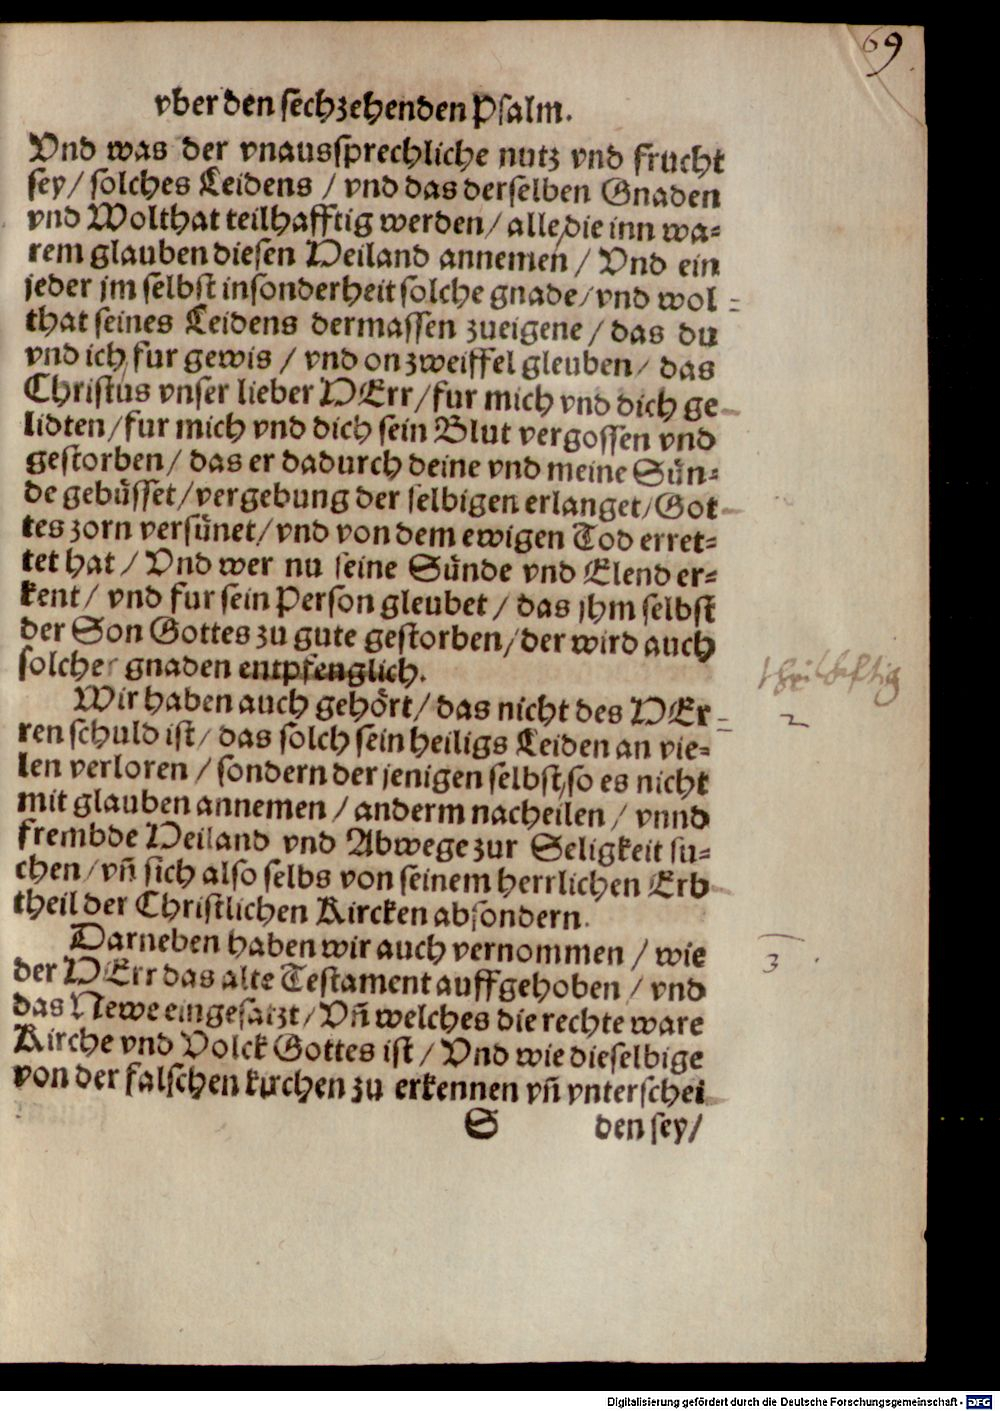 69
vber den sechzehenden Psalm.
Vnd was der vnaussprechliche nutz vnd frucht
sey/ solches Leidens / vnd das derselben Gnaden
vnd Wolthat teilhafftig werden/ alle/die inn wa=
rem glauben diesen Heiland annemen / Vnd ein
jeder jm selbst insonderheit solche gnade/vnd wol=
that seines Leidens dermassen zueigene / das du
vnd ich/ fur gewis / vnd on zweiffel gleuben/ das
Christus vnser lieber HErr/fur mich vnd dich ge-
lidten/fur mich vnd dich sein Blut vergossen vnd
gestorben/ das er dadurch deine vnd meine Sün=
de gebüsset/vergebung der selbigen erlanget/Got-
tes zorn versünet/vnd von dem ewigen Tod erret=
tet hat / Vnd wer nu seine Sünde vnd Elend er=
kent/ vnd fur sein Person gleubet / das jhm selbst
der Son Gottes zu gute gestorben/der wird auch
solcher gnaden entpfenglich.
theilhefftig
Wir haben auch gehört/ das nicht des HEr=
2
ren schuld ist/ das solch sein heiligs Leiden an vie=
len verloren / sondern der jenigen selbst/so es nicht
mit glauben annemen / anderm nacheilen / vnnd
frembde Heiland vnd Abwege zur Seligkeit su=
chen/vñ sich also selbs von seinem herrlichen Erb-
theil der Christlichen Kircken absondern.
Darneben haben wir auch vernommen / wie
3
der HErr das alte Testament auffgehoben / vnd
das Newe eingesatzt/ Vñ welches die rechte ware
Kirche vnd Volck Gottes ist / Vnd wie dieselbige
von der falschen kirchen zu erkennen vñ vnterschei-
S den sey/
Digitalisierung gefördert durch die Deutsche Forschungsgemeinschaft - DFG